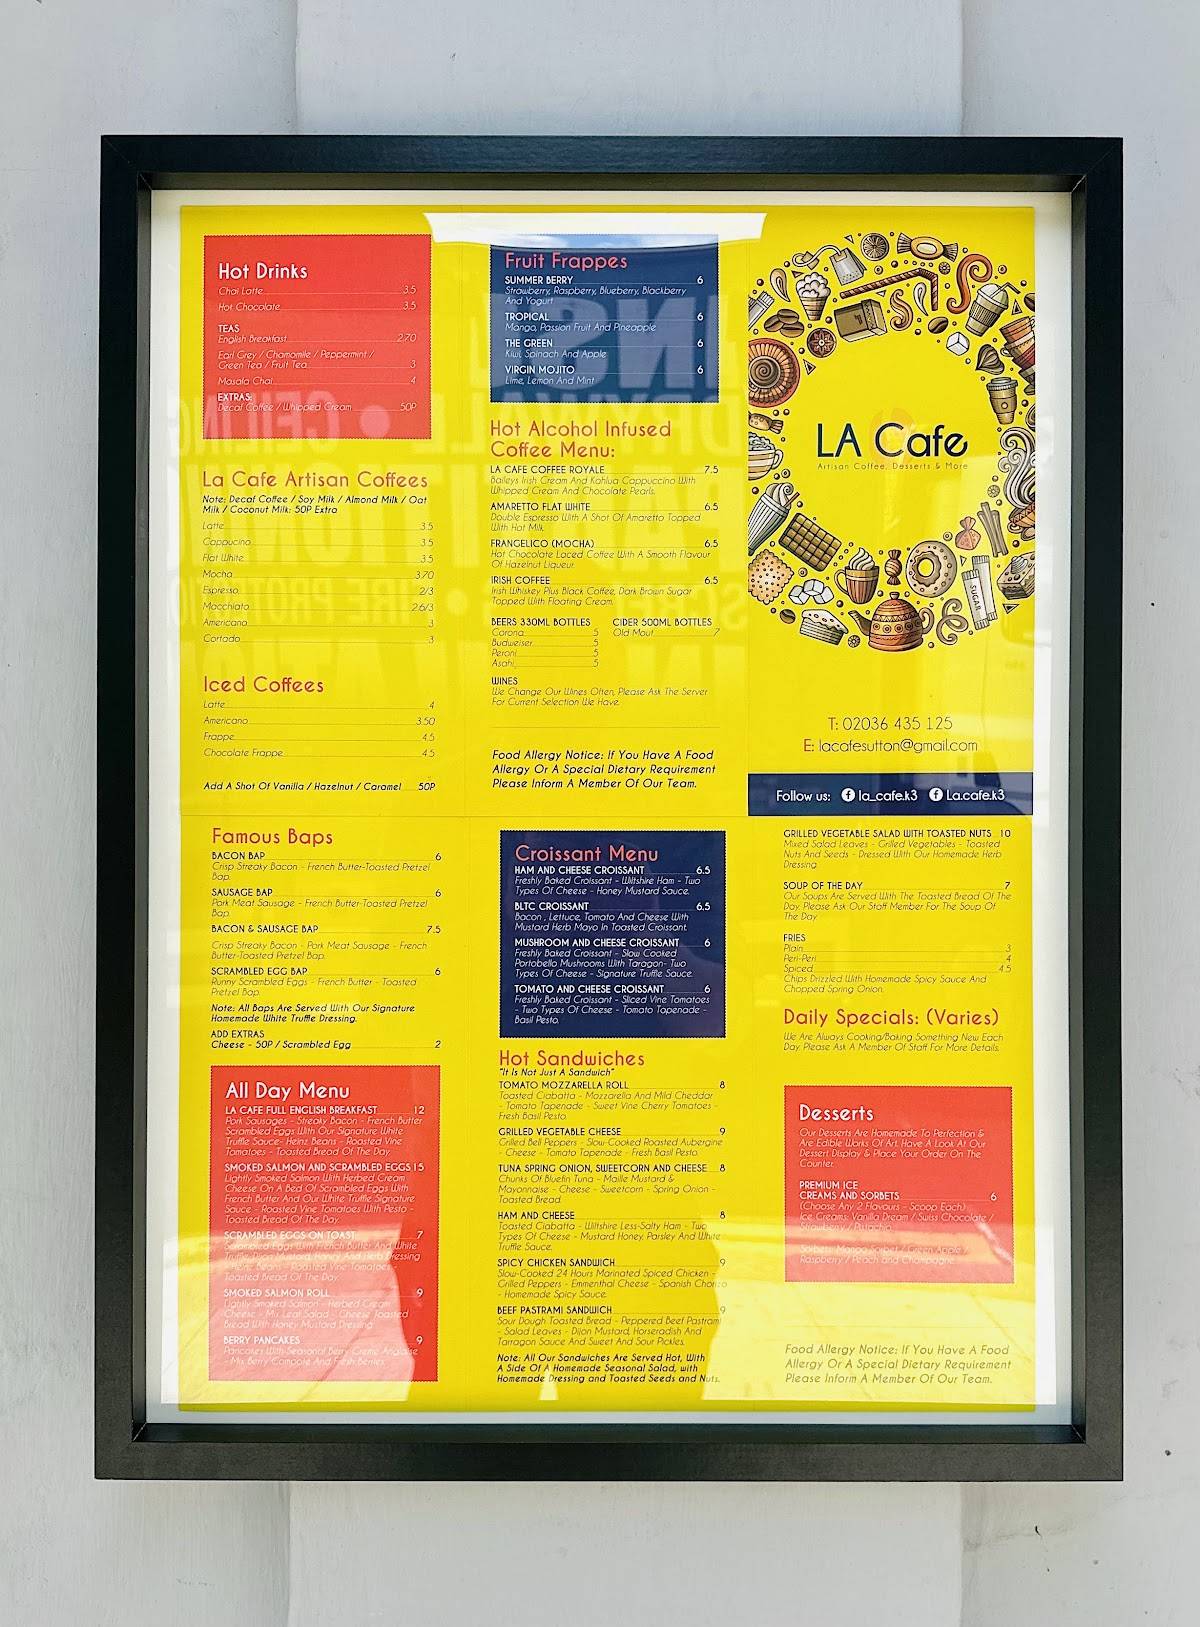 Hot Drinks
Chai Latte 3.5
Hot Chocolate 3.5
TEAS
English Breakfast 2.70
Earl Grey / Chamomile / Peppermint /
Green Tea / Fruit Tea 3
Masala Chai 4
EXTRAS:
Decaf Coffee / Whipped Cream 50P
La Cafe Artisan Coffees
Note: Decaf Coffee / Soy Milk / Almond Milk / Oat
Milk / Coconut Milk: 50P Extra
Latte 3.5
Cappucino 3.5
Flat White 3.5
Mocha 3.70
Espresso 2/3
Macchiato 2.6/3
Americano 3
Cortado 3
Iced Coffees
Latte 4
Americano 3.50
Frappe 4.5
Chocolate Frappe 4.5
Add A Shot Of Vanilla / Hazelnut / Caramel 50P
Fruit Frappes
SUMMER BERRY 6
Strawberry, Raspberry, Blueberry, Blackberry
And Yogurt
TROPICAL 6
Mango, Passion Fruit And Pineapple
THE GREEN 6
Kiwi, Spinach And Apple
VIRGIN MOJITO 6
Lime, Lemon And Mint
Hot Alcohol Infused
Coffee Menu:
LA CAFE COFFEE ROYALE 7.5
Baileys Irish Cream And Kahlua Cappuccino With
Whipped Cream And Chocolate Pearls.
AMARETTO FLAT WHITE 6.5
Double Espresso With A Shot Of Amaretto Topped
With Hot Milk.
FRANGELICO (MOCHA) 6.5
Hot Chocolate Laced Coffee With A Smooth Flavour
Of Hazelnut Liqueur.
IRISH COFFEE 6.5
Irish Whiskey Plus Black Coffee, Dark Brown Sugar
Topped With Floating Cream.
BEERS 330ML BOTTLES
Corona 5
Budweiser 5
Peroni 5
Asahi 5
CIDER 500ML BOTTLES
Old Mout 7
WINES
We Change Our Wines Often, Please Ask The Server
For Current Selection We Have.
Food Allergy Notice: If You Have A Food
Allergy Or A Special Dietary Requirement
Please Inform A Member Of Our Team.
SUGAR
LA Cafe
Artisan Coffee, Desserts & More
T: 02036 435 125
E: lacafesutton@gmail.com
Follow us: la_cafe.k3 La.cafe.k3
Famous Baps
BACON BAP 6
Crisp Streaky Bacon - French Butter-Toasted Pretzel
Bap.
SAUSAGE BAP 6
Pork Meat Sausage - French Butter-Toasted Pretzel
Bap.
BACON & SAUSAGE BAP 7.5
Crisp Streaky Bacon - Pork Meat Sausage - French
Butter-Toasted Pretzel Bap.
SCRAMBLED EGG BAP 6
Runny Scrambled Eggs - French Butter - Toasted
Pretzel Bap.
Note: All Baps Are Served With Our Signature
Homemade White Truffle Dressing.
ADD EXTRAS
Cheese - 50P / Scrambled Egg 2
All Day Menu
LA CAFE FULL ENGLISH BREAKFAST 12
Pork Sausages - Streaky Bacon - French Butter
Scrambled Eggs With Our Signature White
Truffle Sauce- Heinz Beans - Roasted Vine
Tomatoes - Toasted Bread Of The Day.
SMOKED SALMON AND SCRAMBLED EGGS 15
Lightly Smoked Salmon With Herbed Cream
Cheese On A Bed Of Scrambled Eggs With
French Butter And Our White Truffle Signature
Sauce - Roasted Vine Tomatoes With Pesto -
Toasted Bread Of The Day.
SCRAMBLED EGGS ON TOAST 7
Scrambled Eggs With French Butter And White
Truffle, Dijon Mustard, Honey And Herb Dressing
- Heinz Beans - Roasted Vine Tomatoes
Toasted Bread Of The Day.
SMOKED SALMON ROLL 9
Lightly Smoked Salmon - Herbed Cream
Cheese - Mix Leaf Salad - Cheese Toasted
Bread With Honey Mustard Dressing.
BERRY PANCAKES 9
Pancakes With Seasonal Berry Creme Anglaise
- Mix Berry Compote And Fresh Berries.
Croissant Menu
HAM AND CHEESE CROISSANT 6.5
Freshly Baked Croissant - Wiltshire Ham - Two
Types Of Cheese - Honey Mustard Sauce.
BLTC CROISSANT 6.5
Bacon , Lettuce, Tomato And Cheese With
Mustard Herb Mayo In Toasted Croissant.
MUSHROOM AND CHEESE CROISSANT 6
Freshly Baked Croissant - Slow Cooked
Portobello Mushrooms With Taragon- Two
Types Of Cheese - Signature Truffle Sauce.
TOMATO AND CHEESE CROISSANT 6
Freshly Baked Croissant - Sliced Vine Tomatoes
- Two Types Of Cheese - Tomato Tapenade -
Basil Pesto.
Hot Sandwiches
"It Is Not Just A Sandwich"
TOMATO MOZZARELLA ROLL 8
Toasted Ciabatta - Mozzarella And Mild Cheddar
- Tomato Tapenade - Sweet Vine Cherry Tomatoes -
Fresh Basil Pesto.
GRILLED VEGETABLE CHEESE 9
Grilled Bell Peppers - Slow-Cooked Roasted Aubergine
- Cheese - Tomato Tapenade - Fresh Basil Pesto.
TUNA SPRING ONION, SWEETCORN AND CHEESE 8
Chunks Of Bluefin Tuna - Maille Mustard &
Mayonnaise - Cheese - Sweetcorn - Spring Onion -
Toasted Bread.
HAM AND CHEESE 8
Toasted Ciabatta - Wiltshire Less-Salty Ham - Two
Types Of Cheese - Mustard Honey, Parsley And White
Truffle Sauce.
SPICY CHICKEN SANDWICH 9
Slow-Cooked 24 Hours Marinated Spiced Chicken -
Grilled Peppers - Emmenthal Cheese - Spanish Chorizo
- Homemade Spicy Sauce.
BEEF PASTRAMI SANDWICH 9
Sour Dough Toasted Bread - Peppered Beef Pastrami
- Salad Leaves - Dijon Mustard, Horseradish And
Tarragon Sauce And Sweet And Sour Pickles.
Note: All Our Sandwiches Are Served Hot, With
A Side Of A Homemade Seasonal Salad, with
Homemade Dressing and Toasted Seeds and Nuts.
GRILLED VEGETABLE SALAD WITH TOASTED NUTS 10
Mixed Salad Leaves - Grilled Vegetables - Toasted
Nuts And Seeds - Dressed With Our Homemade Herb
Dressing.
SOUP OF THE DAY 7
Our Soups Are Served With The Toasted Bread Of The
Day. Please Ask Our Staff Member For The Soup Of
The Day
FRIES
Plain 3
Peri-Peri 4
Spiced 4.5
Chips Drizzled With Homemade Spicy Sauce And
Chopped Spring Onion.
Daily Specials: (Varies)
We Are Always Cooking/Baking Something New Each
Day. Please Ask A Member Of Staff For More Details.
Desserts
Our Desserts Are Homemade To Perfection &
Are Edible Works Of Art. Have A Look At Our
Dessert Display & Place Your Order On The
Counter.
PREMIUM ICE
CREAMS AND SORBETS 6
(Choose Any 2 Flavours - Scoop Each)
Ice Creams: Vanilla Dream / Swiss Chocolate /
Strawberry / Pistachio
Sorbets: Mango Sorbet / Green Apple /
Raspberry / Peach and Champagne.
Food Allergy Notice: If You Have A Food
Allergy Or A Special Dietary Requirement
Please Inform A Member Of Our Team.